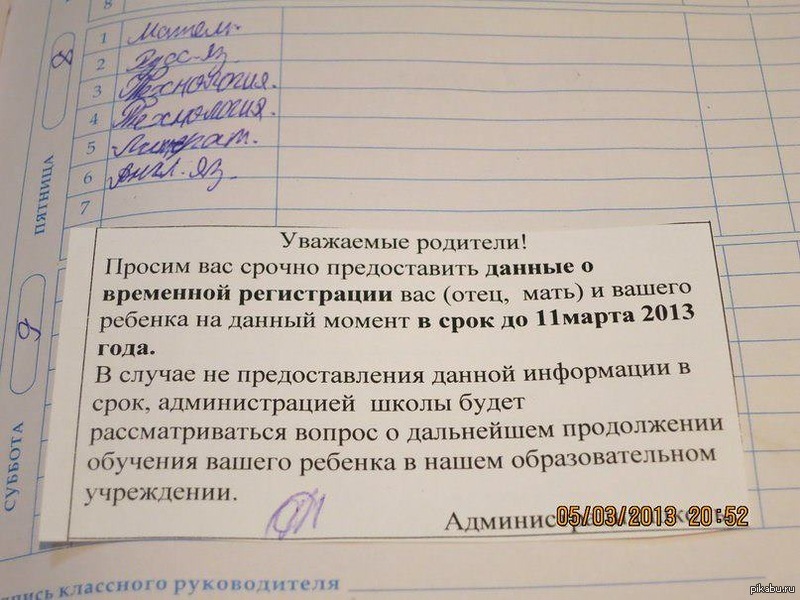 8
1 Матем.
2 Русс. яз.
3 Технология.
4 Технология.
5 Литерат.
6 Англ. яз.
7
ПЯТНИЦА
8
СУББОТА
9
Уважаемые родители!
Просим вас срочно предоставить данные о
временной регистрации вас (отец, мать) и вашего
ребенка на данный момент в срок до 11марта 2013
года.
В случае не предоставления данной информации в
срок, администрацией школы будет
рассматриваться вопрос о дальнейшем продолжении
обучения вашего ребенка в нашем образовательном
учреждении.
05/03/2013 20:52
классного руководителя
pikabu.ru